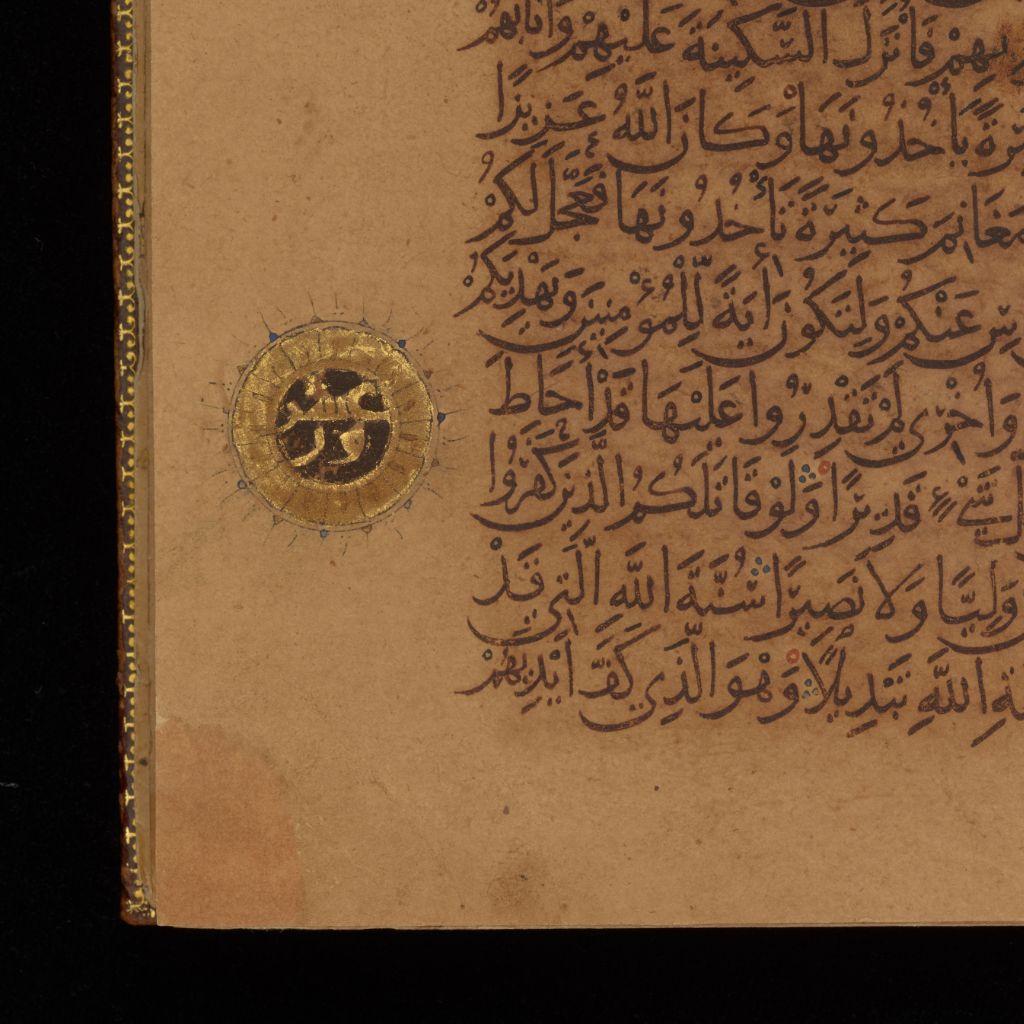 فَأَنْزَلَ السَّكِينَةَ عَلَيْهِمْ وَأَثَابَهُمْ
يَأْخُذُونَهَا وَكَانَ اللَّهُ عَزِيزًا
مَغَانِمَ كَثِيرَةً تَأْخُذُونَهَا فَعَجَّلَ لَكُمْ
عَنْكُمْ وَلِتَكُونَ آيَةً لِلْمُؤْمِنِينَ وَيَهْدِيَكُمْ
وَأُخْرَى لَمْ تَقْدِرُوا عَلَيْهَا قَدْ أَحَاطَ
شَيْءٍ قَدِيرًا وَلَوْ قَاتَلَكُمُ الَّذِينَ كَفَرُوا
وَلِيًّا وَلَا نَصِيرًا سُنَّةَ اللَّهِ الَّتِي قَدْ
اللَّهِ تَبْدِيلًا وَهْوَ الَّذِي كَفَّ أَيْدِيَهُمْ